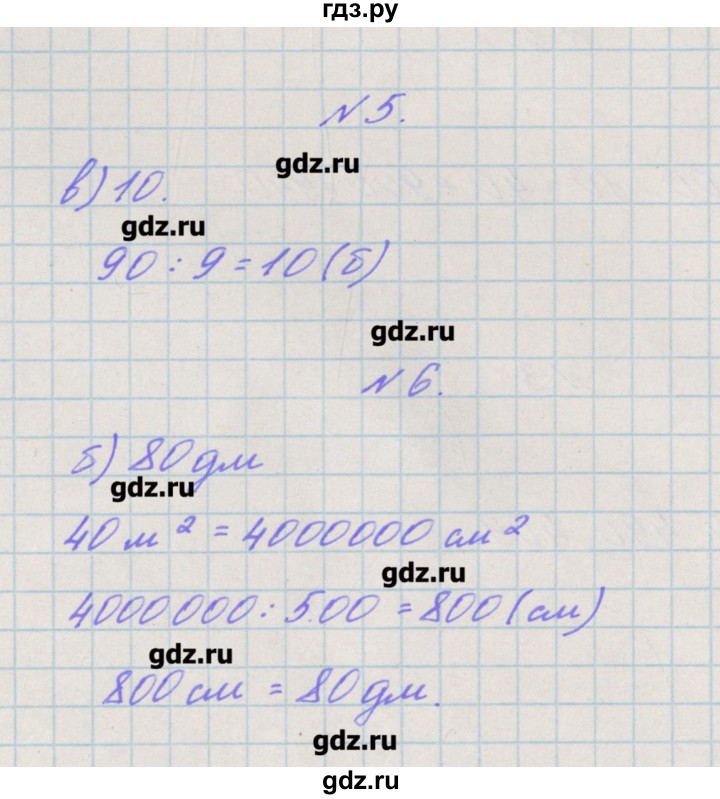 гдз.ру
№ 5.
gdz.ru
в) 10.
gdz.ru
90 : 9 = 10 (б)
gdz.ru
№ 6.
б) 80 дм
gdz.ru
40 м² = 4000000 см²
gdz.ru
4000000 : 500 = 800 (см)
gdz.ru
800 см = 80 дм.
gdz.ru
gdz.ru